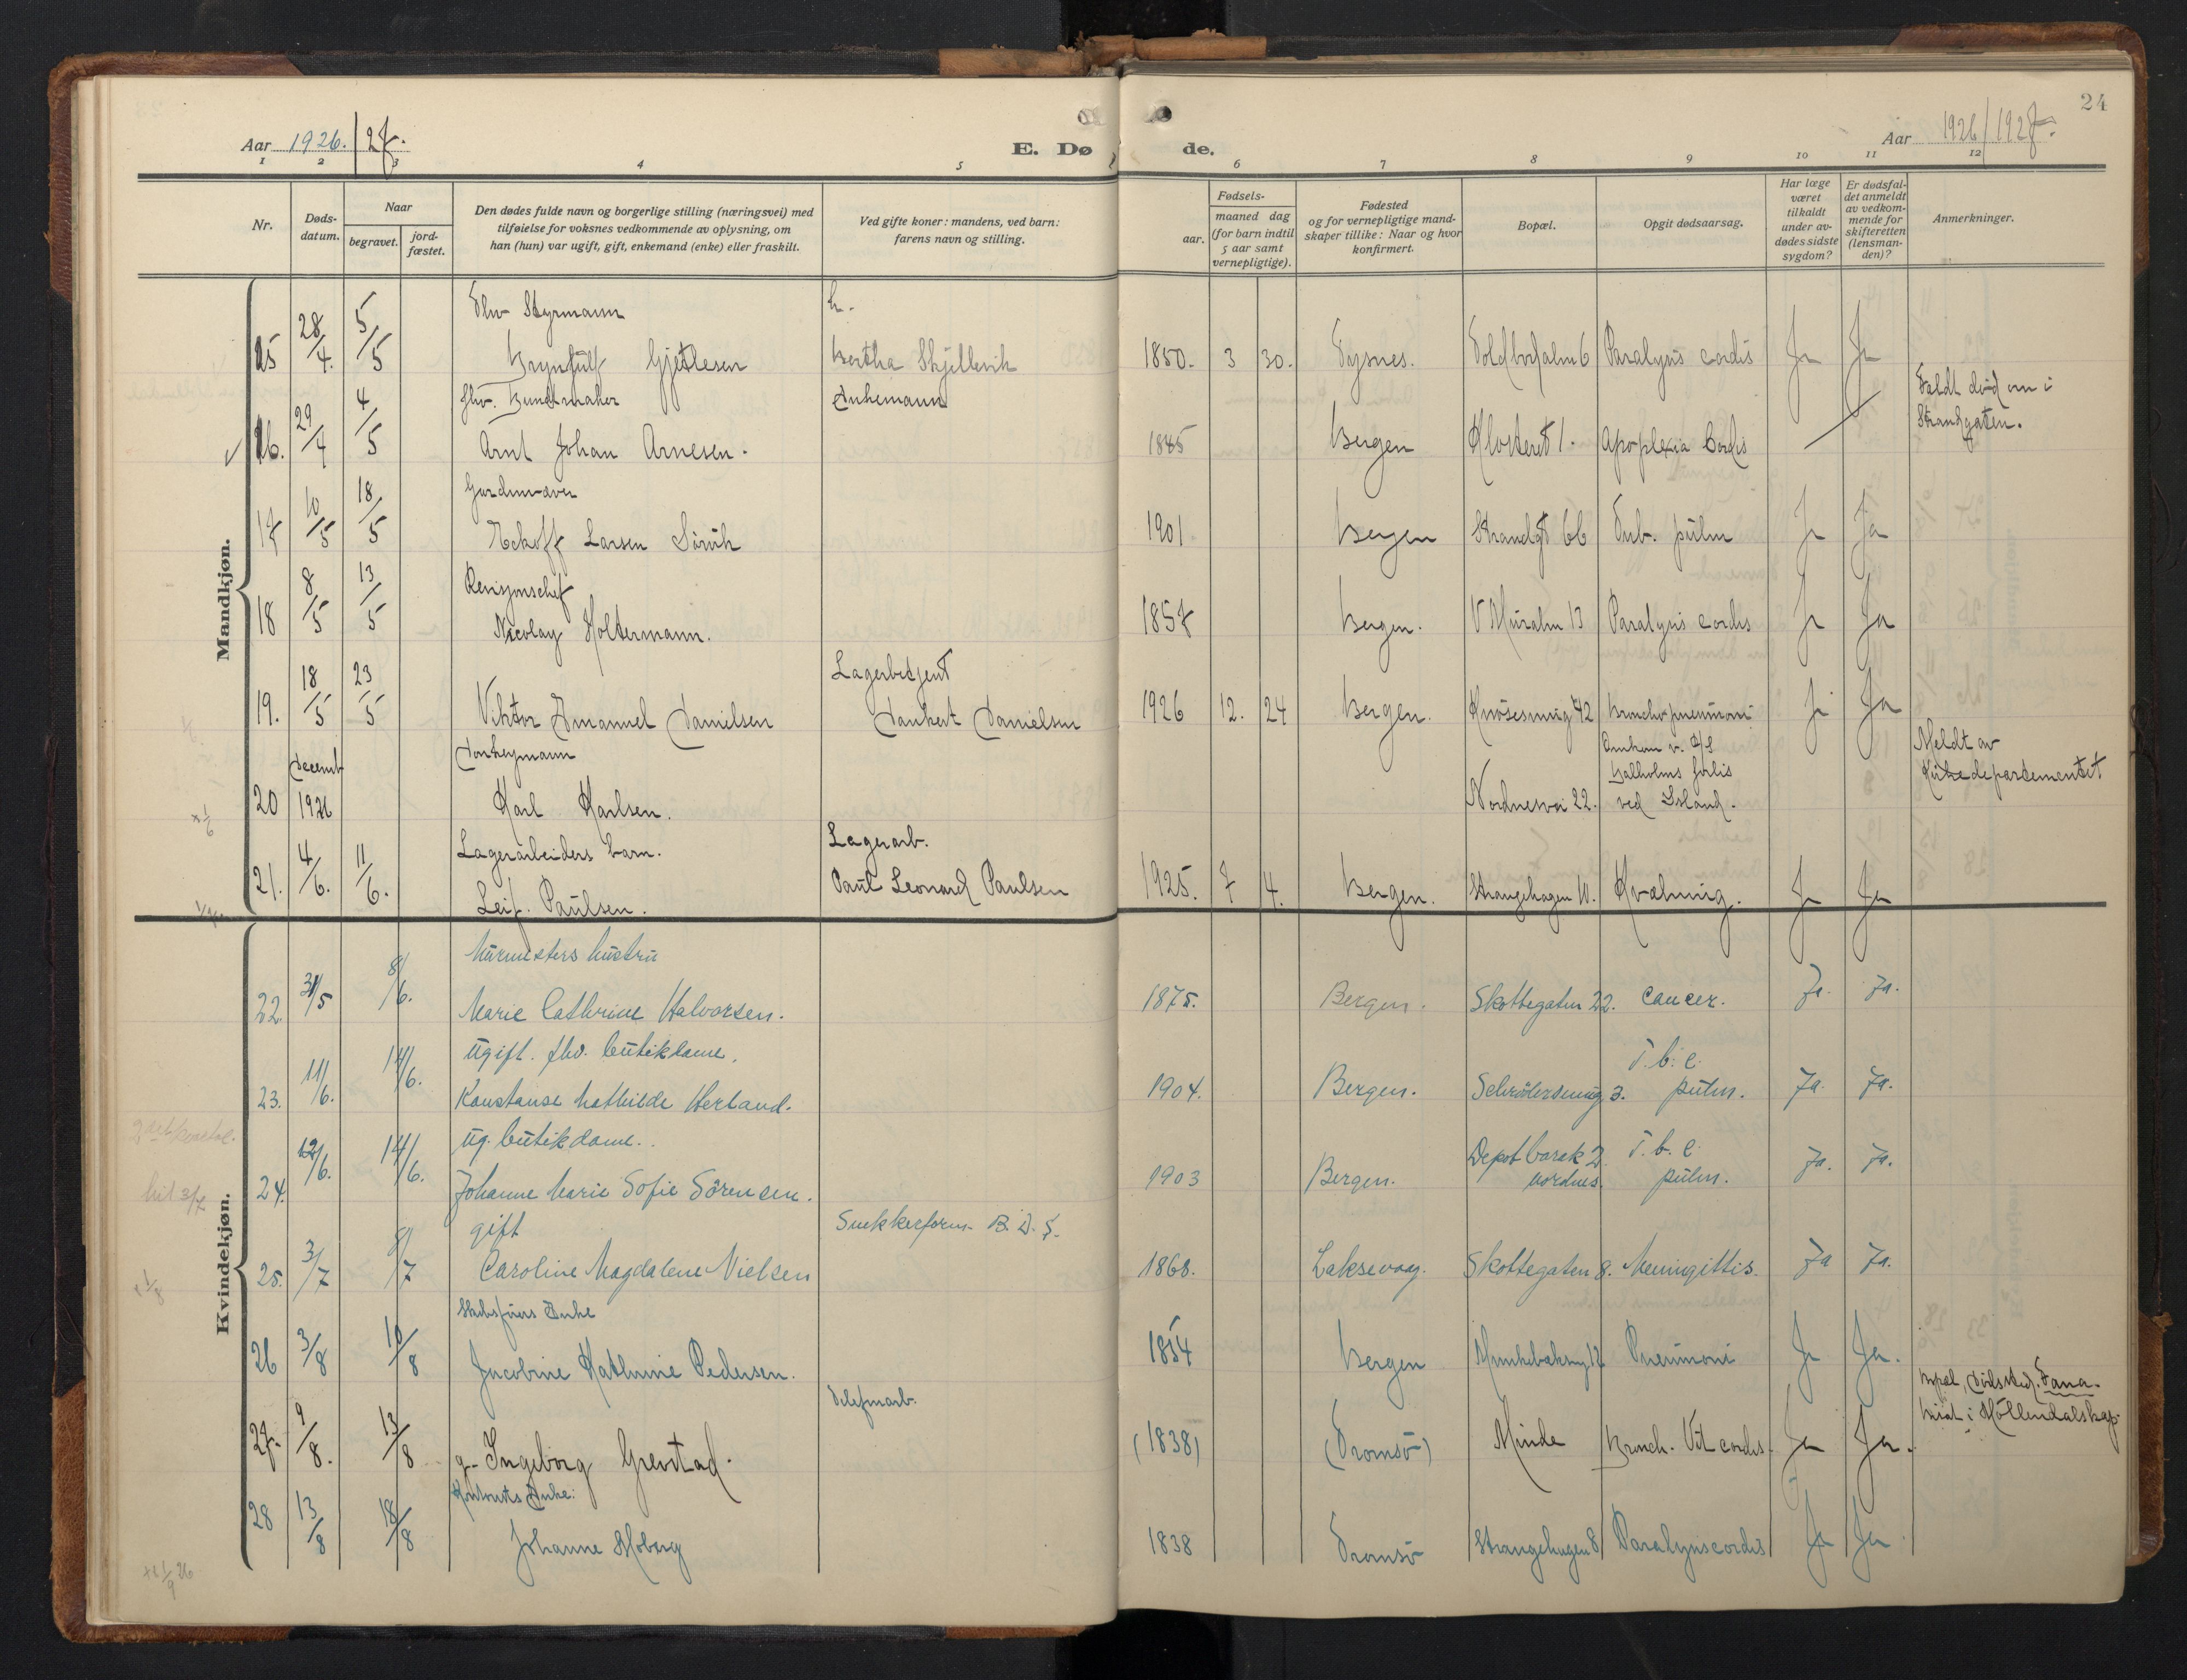 24
Aar 1926. / 27.
E. Døde.
Aar 1926/1927.
1 2 3 4 5 6 7 8 9 10 11 12
Nr.
Døds-
datum.
Naar
begravet.
jord-
fæstet.
Den dødes fulde navn og borgerlige stilling (næringsvei) med
tilføielse for voksnes vedkommende av oplysning, om
han (hun) var ugift, gift, enkemand (enke) eller fraskilt.
Ved gifte koner: mandens, ved barn:
farens navn og stilling.
Fødsels-
aar.
maaned dag
(for barn indtil
5 aar samt
vernepligtige).
Fødested
og for vernepligtige mand-
skaper tillike: Naar og hvor
konfirmert.
Bopæl.
Opgit dødsaarsag.
Har læge
været
tilkaldt
under av-
dødes sidste
sygdom?
Er dødsfal-
det anmeldt
av vedkom-
mende for
skifteretten
(lensman-
den)?
Anmerkninger.
Mandkjøn.
Fhv Styrmann
15 28/4. 5/5 Brynjulf Gjetlesen Bertha Skjellevik 1850. 3 30. Tysnes. Toldbodalm 6 Paralysis cordis Ja Ja
fhv. Buntmaker Enkemann
16. 29/4 4/5 Arnt Johan Arnesen. 1845 Bergen Klosteret 1. Apoplexia Cordis
Faldt død om i
Strandgaten.
17 10/5 18/5 Eckoff Larsen Sörvik 1901 Bergen Strandgt 66 Tub. pulm Ja Ja
18 8/5 13/5 Revisjonschef
Nicolay Holtermann. 1857 Bergen. V Muralm 13 Paralysis cordis Ja Ja
Lagerbetjent
19. 18/5 23/5 Viktor Emanuel Danielsen Dankert Danielsen 1926 12. 24 Bergen. Knösesmug 42 Bronchopneumoni Ja Ja
Donkeymann
20 Decemb 1926 Karl Karlsen. Nordnesvei 22.
Omkom v. D/S
Balholms forlis
ved Island.
Meldt av
Kirkedepartementet
Lagerarbeiders barn. Lagerarb.
21. 4/6. 11/6. Leif Paulsen. Paul Leonard Paulsen 1925. 7 4. Bergen. Strangehagen 10. Kvælning. Ja Ja
Kvindekjøn.
Murmesters hustru
22. 31/5 8/6. Marie Cathrine Halvorsen. 1875. Bergen. Skottegaten 22. Cancer. Ja. Ja.
Ugift. fhv. butikdame.
23. 11/6. 14/6. Konstanse Mathilde Herland. 1904. Bergen. Schrödersmug 3. T.b.c. pulm. Ja. Ja.
2det kvartal.
Ug. butikdame.
24. 12/6. 14/6. Johanne Marie Sofie Sörensen. 1903 Bergen. Depotbarak 2. Nordnes. T.b.c. pulm. Ja. Ja.
gift Snekkerform. B.D.S.
25. 3/7 8/7 Caroline Magdalene Nielsen 1868. Laksevaag. Skottegaten 8. Meningittis. Ja Ja.
Skibsförers Enke
26 3/8 10/8 Jacobine Kathrine Pedersen. 1854 Bergen Pneumoni Ja Ja.
Telefonarb.
27. 9/8. 13/8 g. Ingeborg Grevstad. (1838) (Tromsö) Minde Bronch. Vit cordis. Ja Ja.
Bopæl, Dödssted. Fana.
Bisat i Möllendalskap.
Kontorists Enke.
28 13/8 18/8 Johanne Moberg 1838 Tromsö Strangehagen 8 Paralysis cordis Ja Ja.